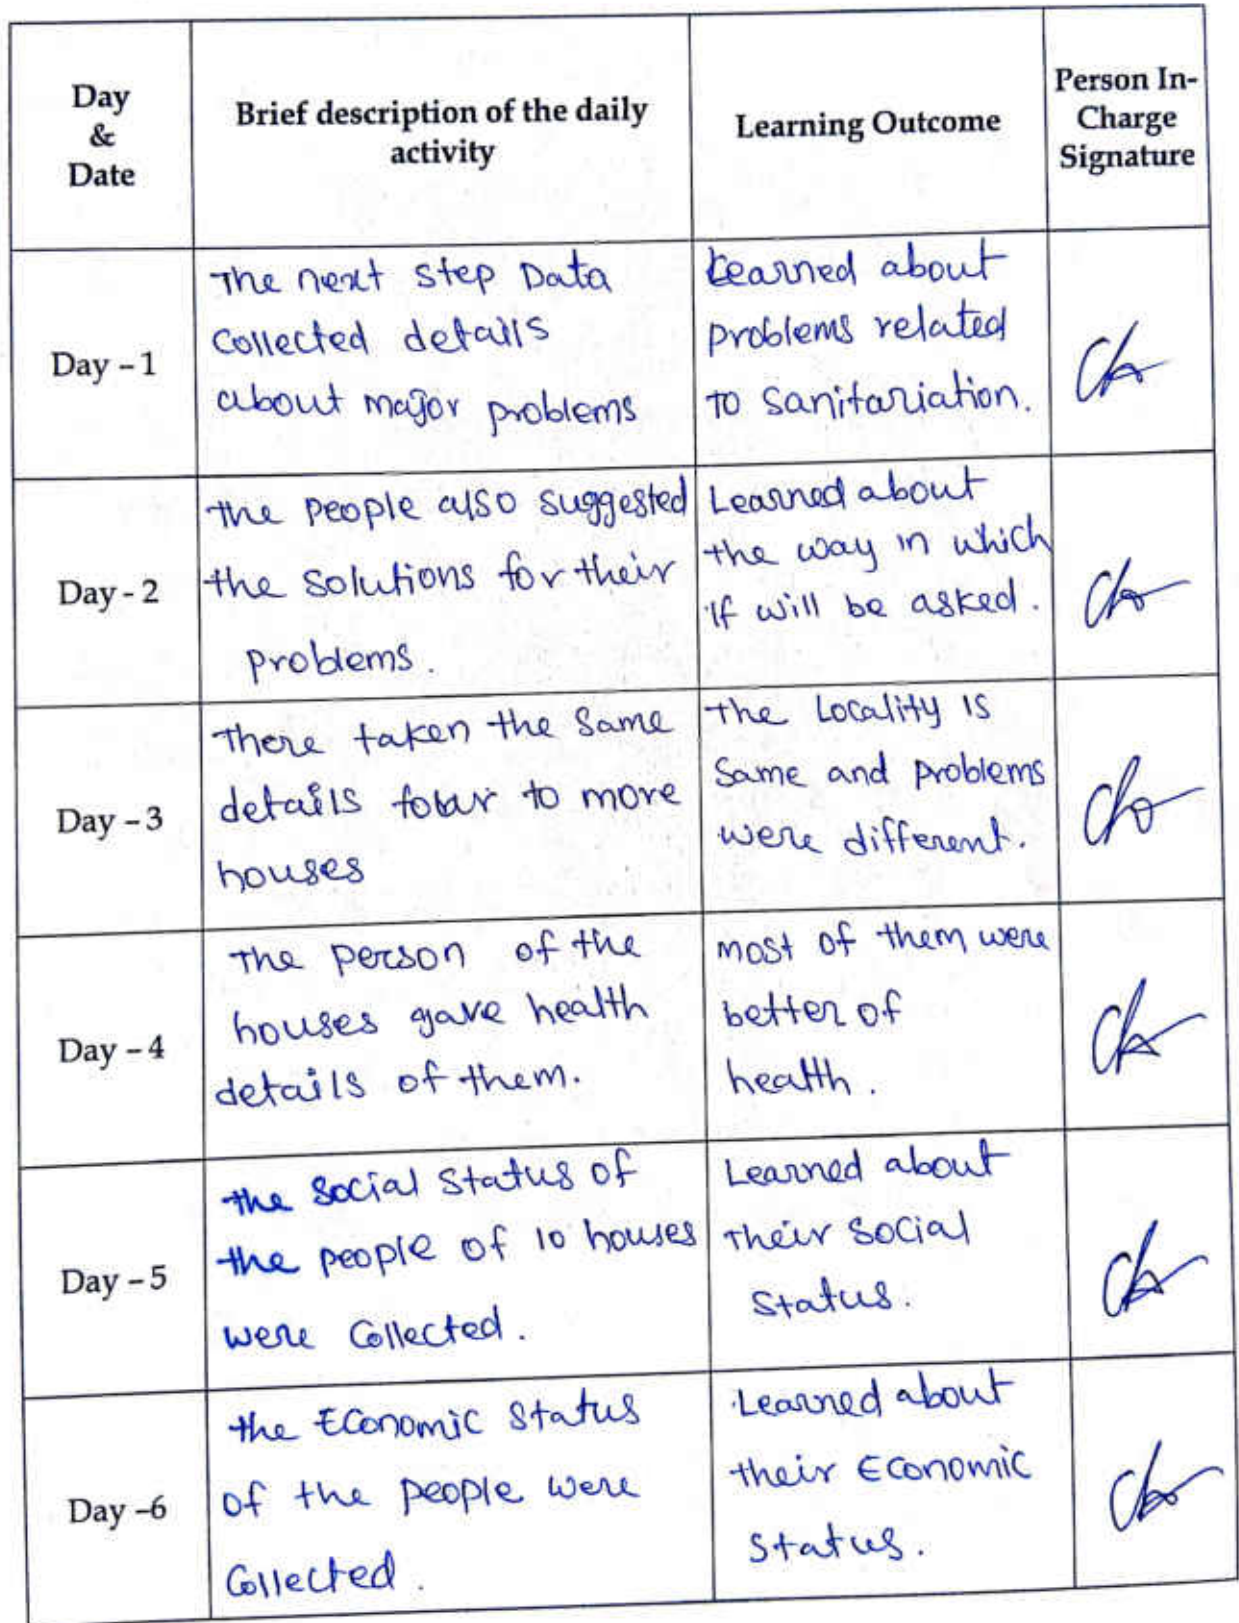 Day
&
Date
Brief description of the daily
activity
Learning Outcome
Person In-
Charge
Signature
Day – 1
The next step Data
Collected details
about major problems
Learned about
problems related
to Sanitariation.
Day - 2
the people also suggested
the solutions for their
problems.
Learned about
the way in which
if will be asked.
Day – 3
There taken the same
details to more
houses
The Locality is
same and problems
were different.
Day – 4
The person of the
houses gave health
details of them.
most of them were
better of
health.
Day – 5
the social status of
the people of 10 houses
were Collected.
Learned about
their social
status.
Day –6
the Economic status
of the people were
Collected.
Learned about
their Economic
status.